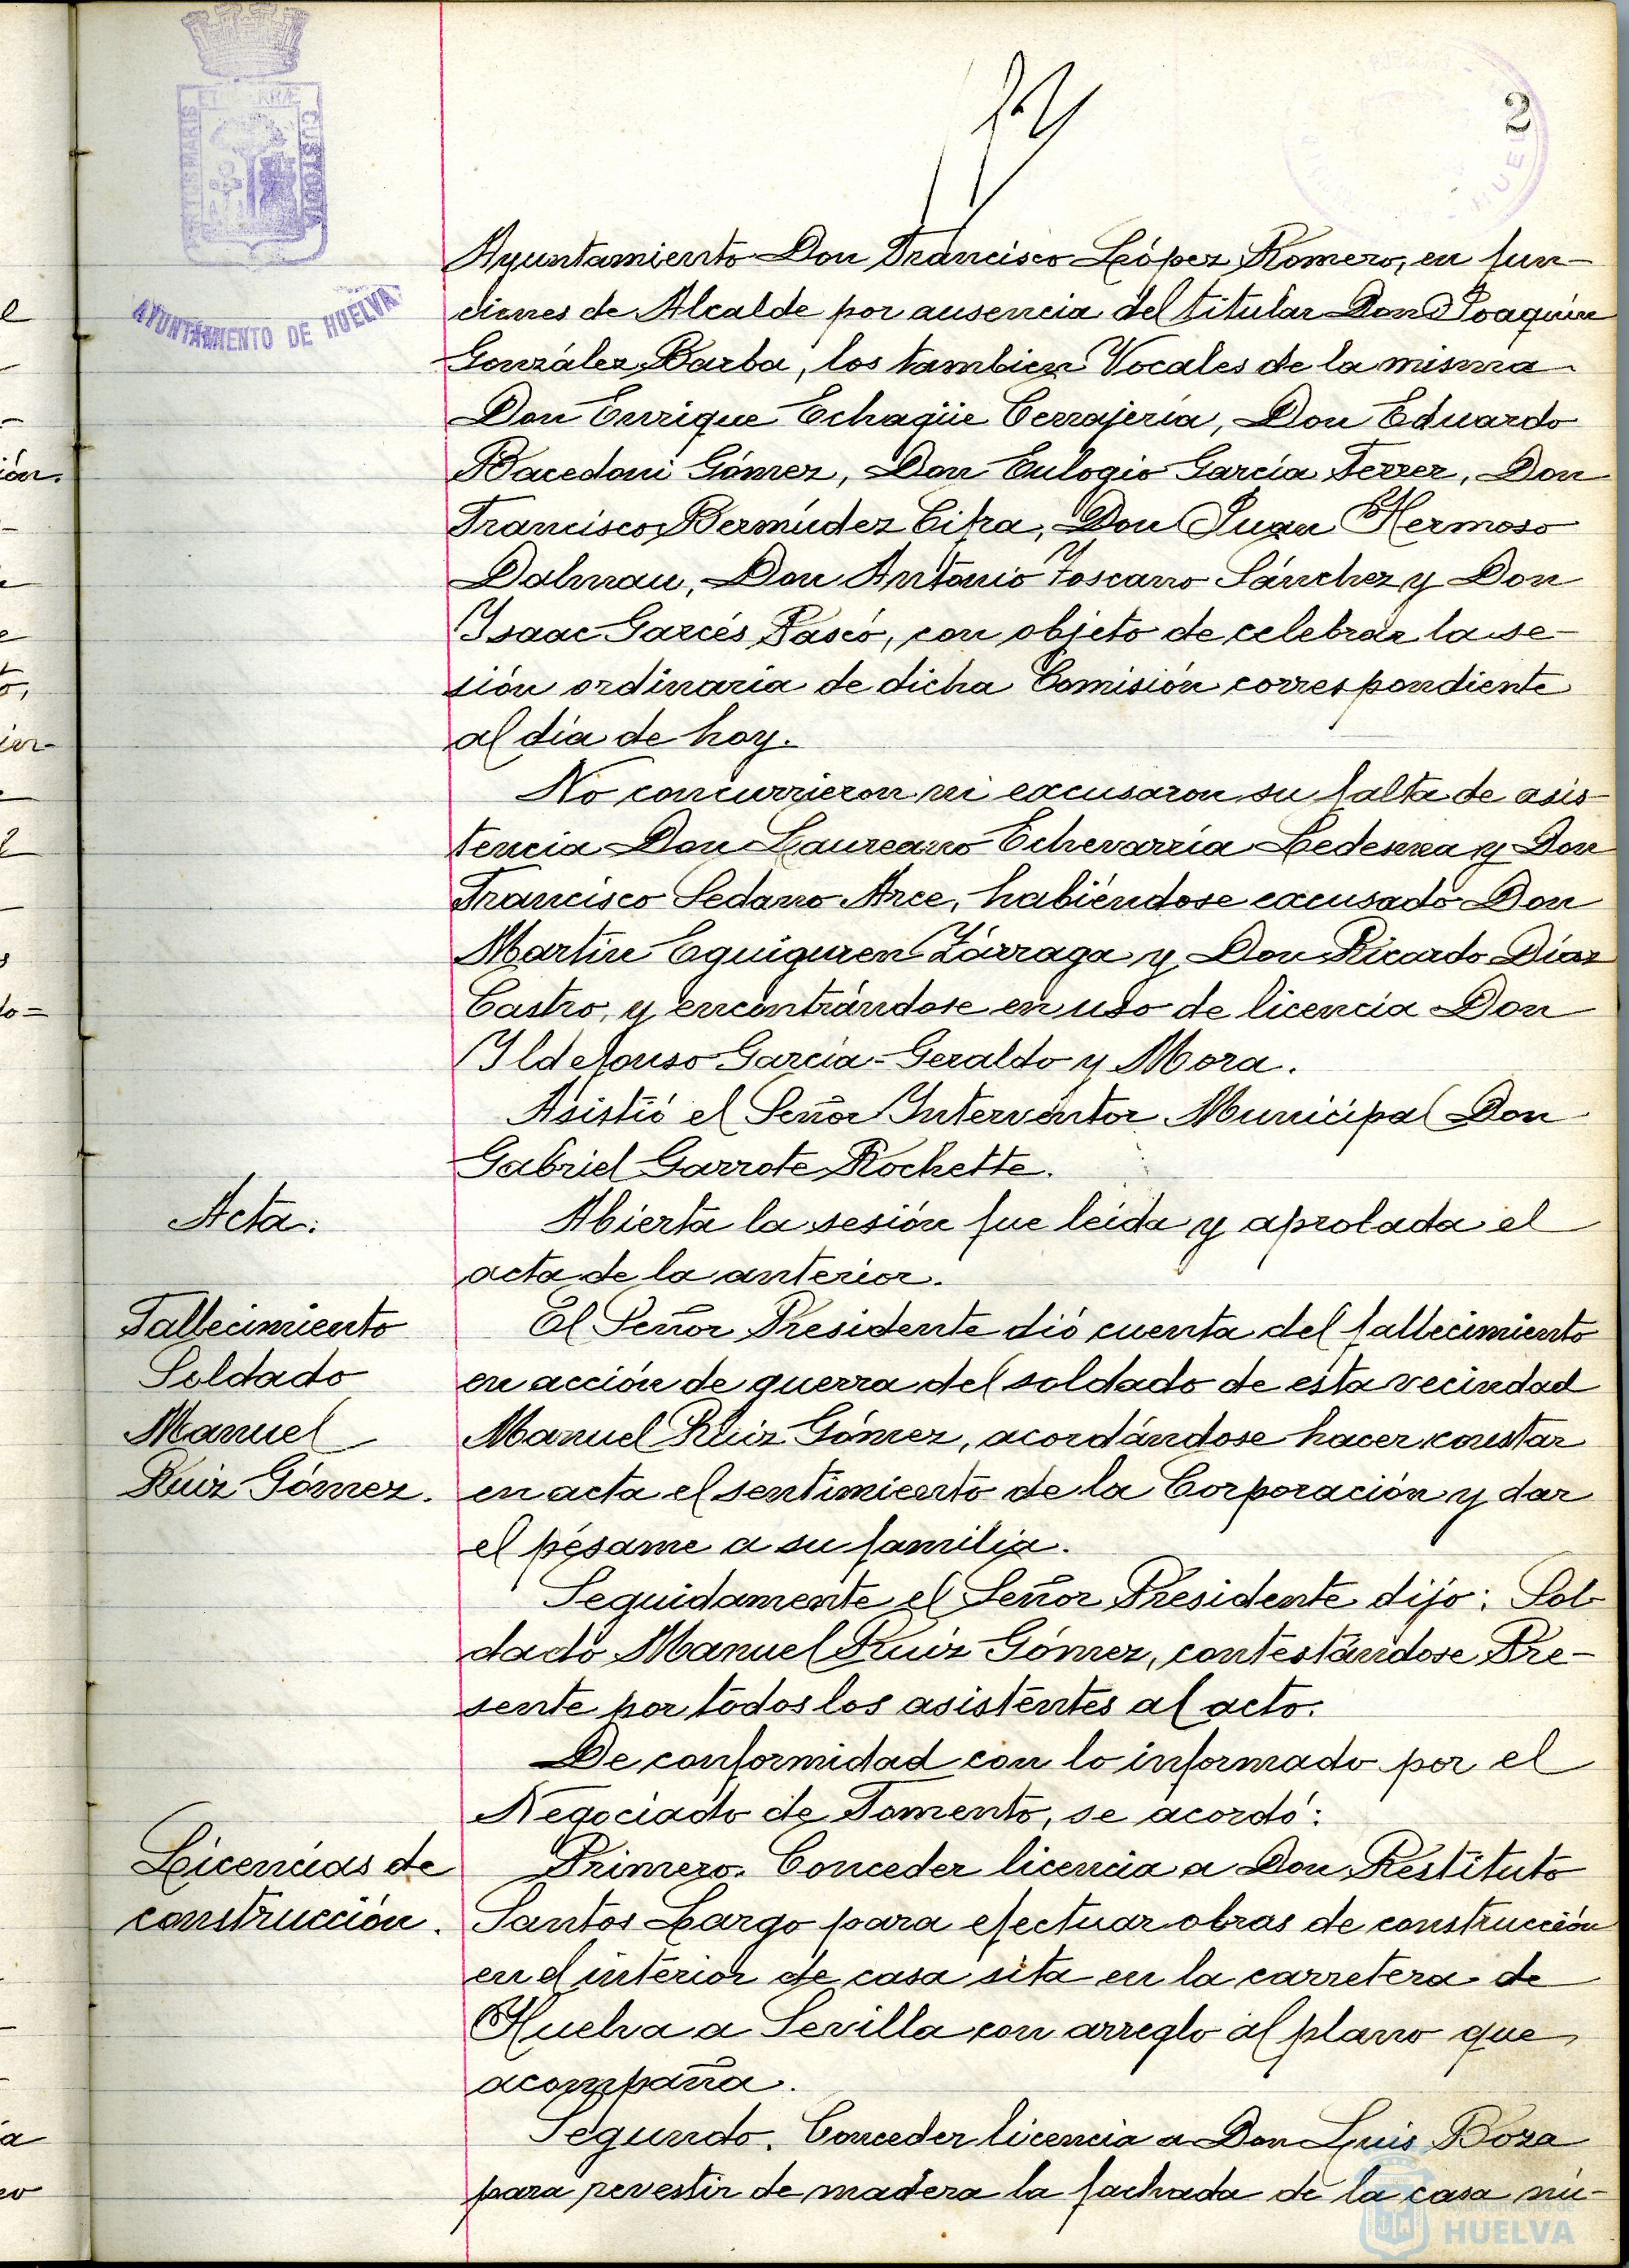 2
PORTUS MARIS ET TERRÆ CUSTODIA
AYUNTAMIENTO DE HUELVA
HUEL
Ayuntamiento Don Francisco López Romero, en fun-
ciones de Alcalde por ausencia del titular Don Joaquín
González Barba, los tambien Vocales de la misma
Don Enrique Echagüe Cerrajería, Don Eduardo
Bacedoni Gómez, Don Eulogio García Ferrer, Don
Francisco Bermúdez Cifra, Don Juan Hermoso
Dalmau, Don Antonio Toscano Sánchez y Don
Isaac Garcés Pascó, con objeto de celebrar la se-
sión ordinaria de dicha Comisión correspondiente
al día de hoy.
No concurrieron ni excusaron su falta de asis-
tencia Don Laureano Echevarría Ledesma y Don
Francisco Sedano Arce, habiéndose excusado Don
Martín Eguiguren Zárraga y Don Ricardo Díaz
Castro, y encontrándose en uso de licencia Don
Ildefonso García-Geraldo y Mora.
Asistió el Señor Interventor Municipal Don
Gabriel Garrote Rochette.
Acta.
Abierta la sesión fue leída y aprobada el
acta de la anterior.
Fallecimiento
Soldado
Manuel
Ruiz Gómez.
El Señor Presidente dió cuenta del fallecimiento
en acción de guerra del soldado de esta vecindad
Manuel Ruiz Gómez, acordándose hacer constar
en acta el sentimiento de la Corporación y dar
el pésame a su familia.
Seguidamente el Señor Presidente dijo: Sol-
dado Manuel Ruiz Gómez, contestándose Pre-
sente por todos los asistentes al acto.
De conformidad con lo informado por el
Negociado de Fomento, se acordó:
Licencias de
construcción.
Primero. Conceder licencia a Don Restituto
Santos Largo para efectuar obras de construcción
en el interior de casa sita en la carretera de
Huelva a Sevilla con arreglo al plano que
acompaña.
Segundo. Conceder licencia a Don Luis Boza
para revestir de madera la fachada de la casa nú-
Ayuntamiento de
HUELVA